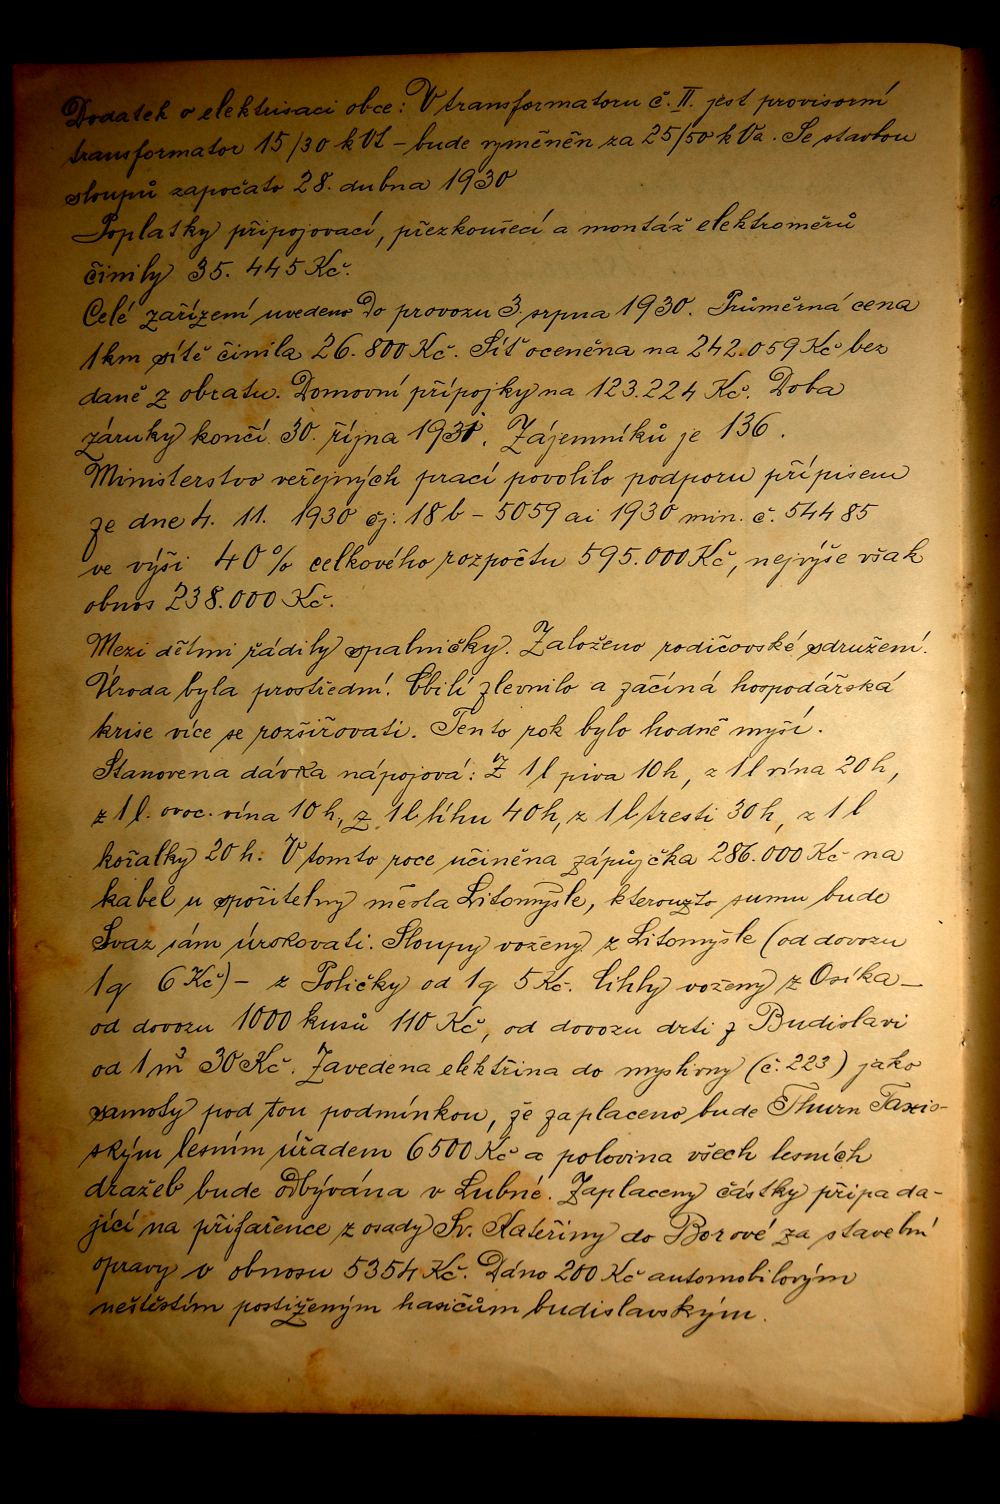 Dodatek o elektrisaci obce: V transformatoru č. II. jest provisorní
transformator 15/30 kVt – bude vyměněn za 25/50 kVa. Se stavbou
sloupů započato 28. dubna 1930
Poplatky připojovací, přezkoušecí a montáž elektroměrů
činily 35.445 Kč.
Celé zařízení uvedeno do provozu 3. srpna 1930. Průměrná cena
1 km sítě činila 26.800 Kč. Síť oceněna na 242.059 Kč bez
daně z obratu. Domovní přípojky na 123.224 Kč. Doba
záruky končí 30. října 1931. Zájemníků je 136.
Ministerstvo veřejných prací povolilo podporu přípisem
ze dne 4. 11. 1930 čj. 18 b – 5059 ai 1930 min. č. 54485
ve výši 40 % celkového rozpočtu 595.000 Kč, nejvýše však
obnos 238.000 Kč.
Mezi dětmi řádily spalničky. Založeno rodičovské sdružení.
Úroda byla prostřední. Obilí zlevnilo a začíná hospodářská
krise více se rozšiřovati. Tento rok bylo hodně myší.
Stanovena dávka nápojová: Z 1 l piva 10 h, z 1 l vína 20 h,
z 1 l. ovoc. vína 10 h, z 1 l líhu 40 h, z 1 l tresti 30 h, z 1 l
kořalky 20 h. V tomto roce učiněna zápůjčka 286.000 Kč na
kabel u spořitelny města Litomyšle, kteroužto sumu bude
Svaz sám úrokovati. Sloupy voženy z Litomyšle (od dovozu
1 q 6 Kč) – z Poličky od 1 q 5 Kč. Cihly voženy z Osíka –
od dovozu 1000 kusů 110 Kč, od dovozu drti z Budislavi
od 1 m³ 30 Kč. Zavedena elektřina do myslivny (č. 223) jako
samoty pod tou podmínkou, že zaplaceno bude Thurn Taxis-
ským lesním úřadem 6500 Kč a polovina všech lesních
dražeb bude odbývána v Lubné. Zaplaceny částky připada-
jící na přifařence z osady Sv. Kateřiny do Borové za stavební
opravy v obnosu 5354 Kč. Dáno 200 Kč automobilovým
neštěstím postiženým hasičům budislavským.